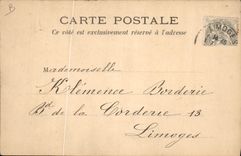 B
CARTE POSTALE
Ce côté est exclusivement réservé à l'adresse
LIMOGES
Mademoiselle
Klémence Borderie
Bd de la Corderie 13
Limoges